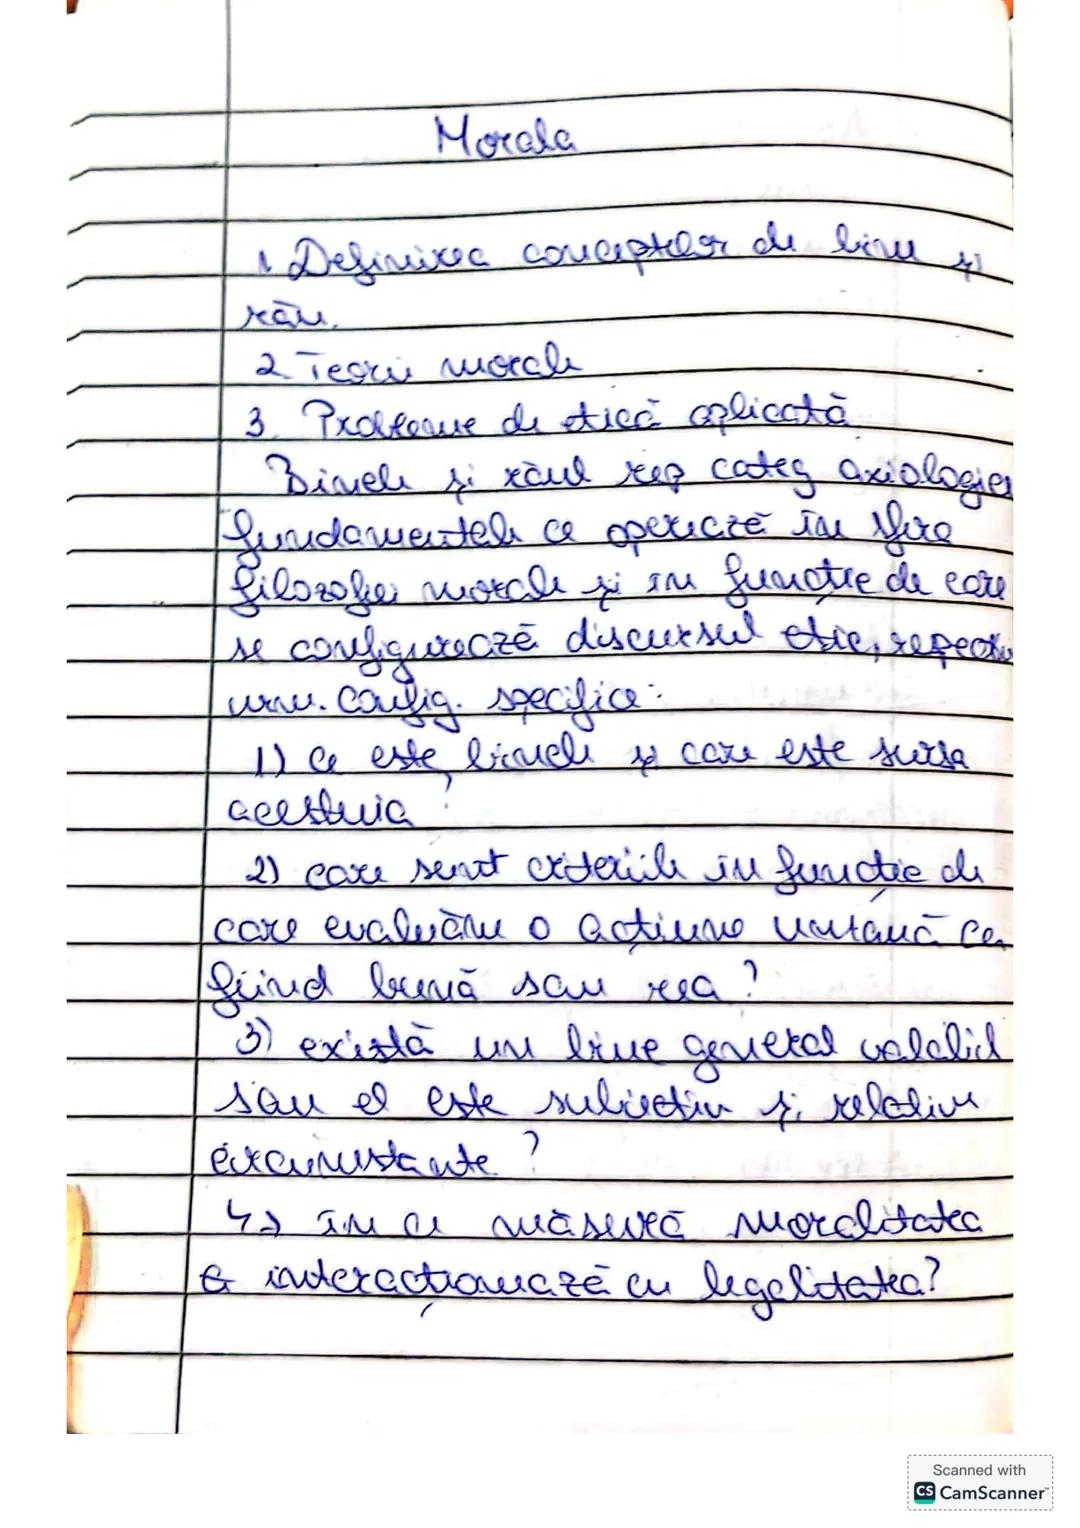 Morala
1 Definirea conceptelor de bine și
rău.
2 Teorii morale
3. Probleme de etică aplicată
Binele și răul rep categ axiologice
fundamentale ce operează în sfera
filozofiei morale și în funcție de care
se configurează discursul etic, respectiv
urm. config. specifice:
1) Ce este binele și care este sursa
acestuia?
2) care sunt criteriile în funcție de
care evaluăm o acțiune umană ca
fiind bună sau rea?
3) există un bine general valabil
sau el este subiectiv și relativ
circumstanțe?
4) în ce măsură moralitatea
interacționează cu legalitatea?
Scanned with
CS CamScanner